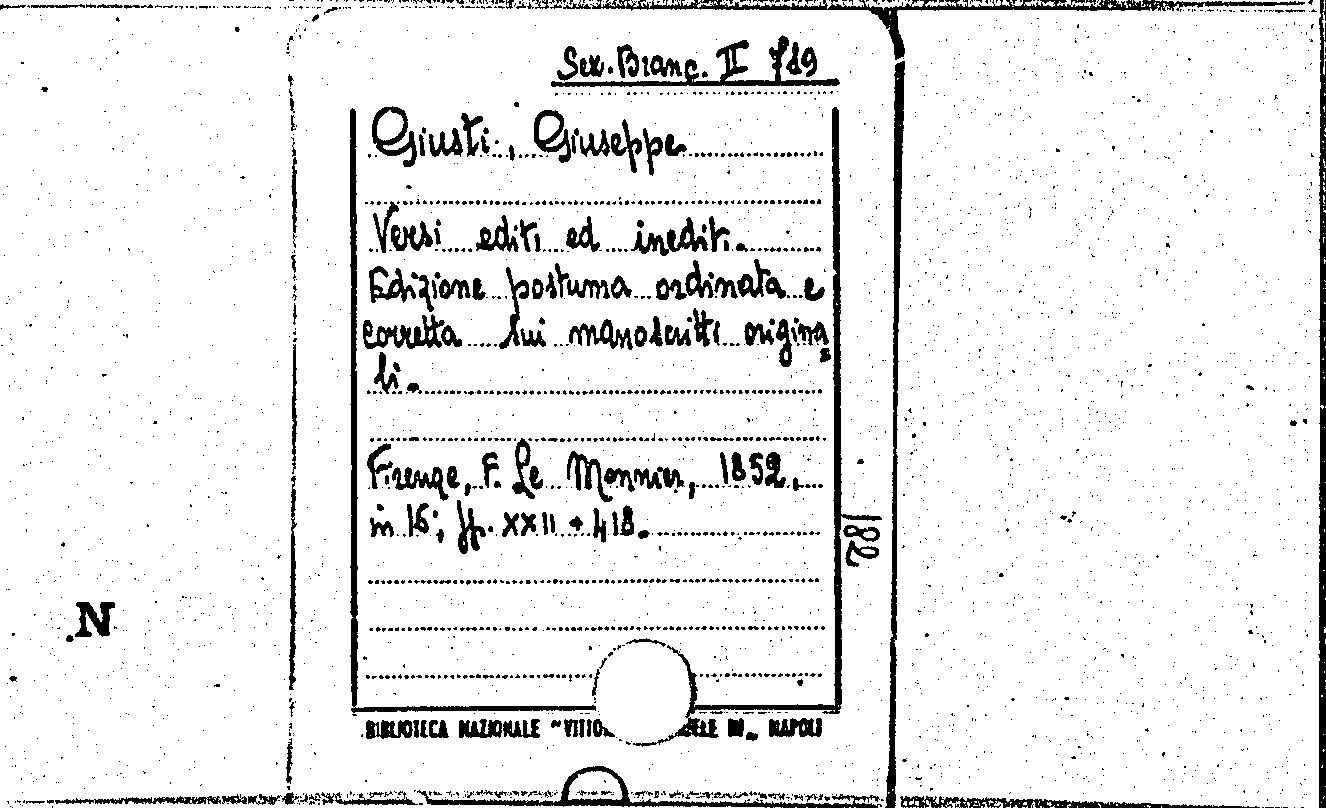 Sez. Branc. II 719
Giusti, Giuseppe
Versi editi ed inediti.
Edizione postuma ordinata e
corretta sui manoscritti origina=
li.
Firenze, F. Le Monnier, 1852.
in 16°; pp. XXII + 418.
182
N
BIBLIOTECA NAZIONALE NAPOLI